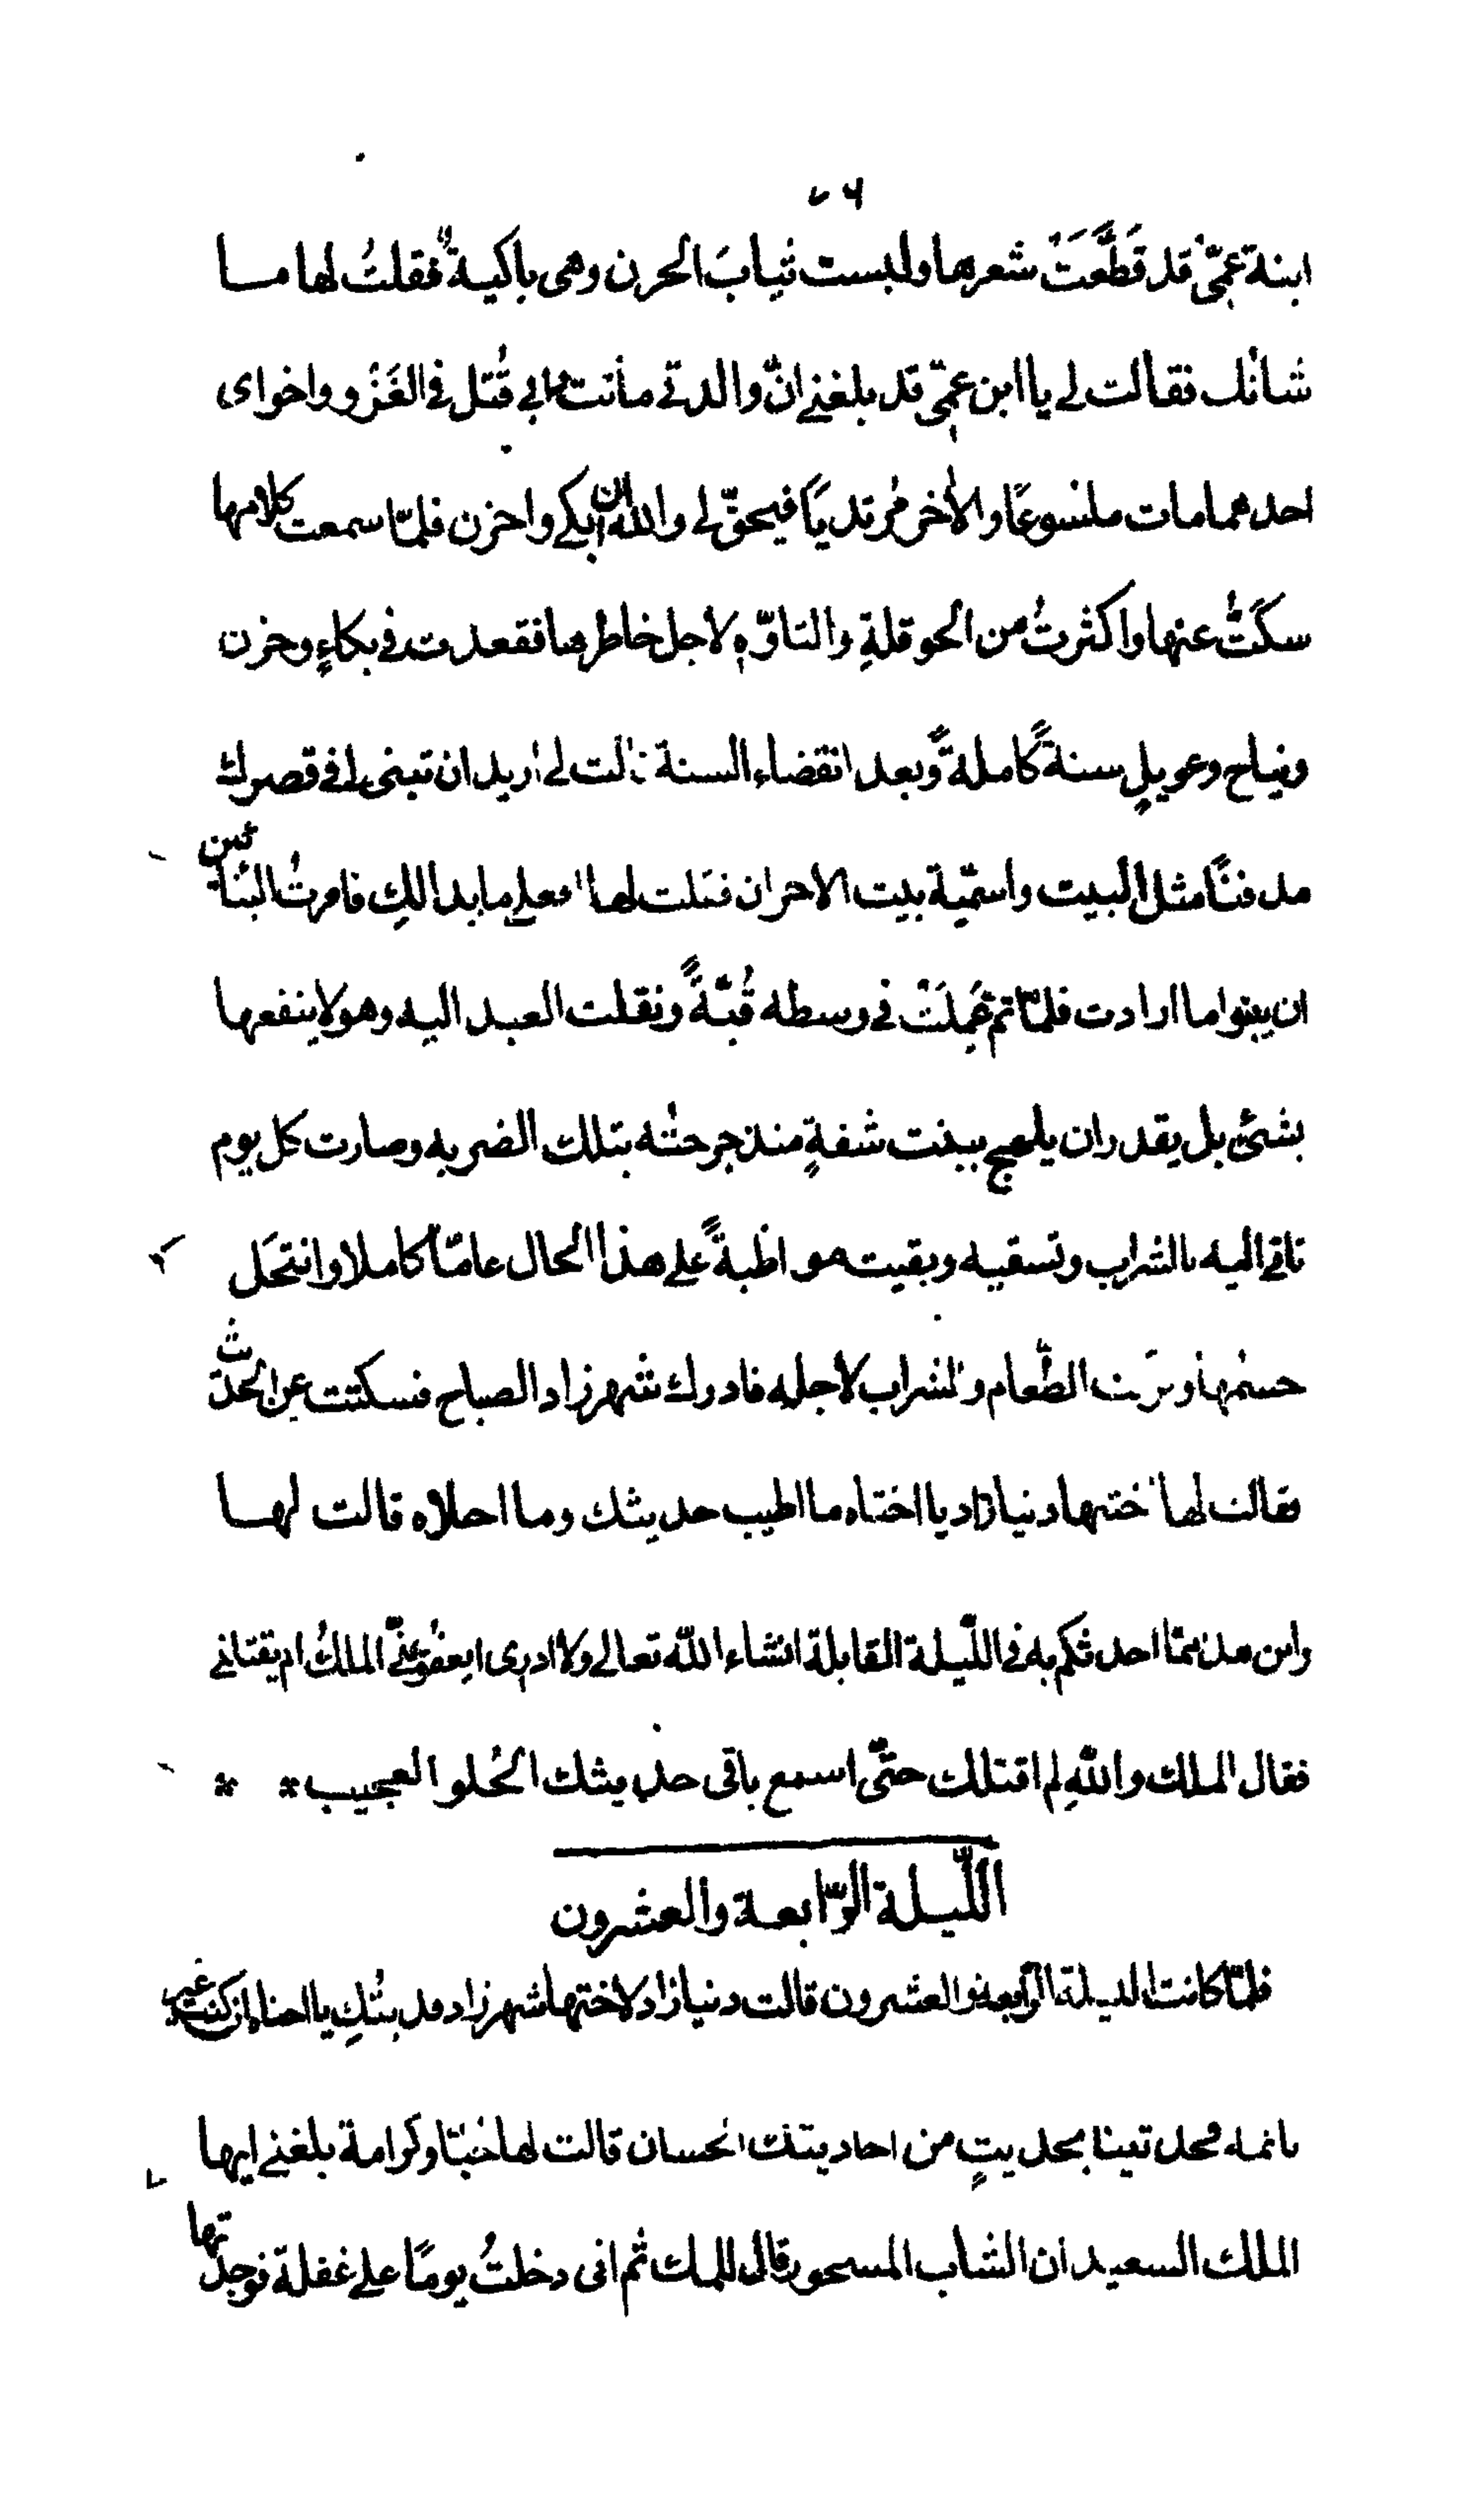 ابنة عمّي قد قَطَّعَتْ شعرها ولبست ثيابَ الحزن وهي باكيةٌ فقلتُ لها ما
شانك فقالت لي يا ابن عمّي قد بلغني انّ والدتي ماتت وابي قُتل في الغَزْو واخواى
احدهما مات ملسوعًا والأخر مُرتديًا فيحقّ لي والله ان ابكي واحزن فلمّا سمعت كلامها
سكتُّ عنها واكثرتُ من الحوقلةِ والتاوّهِ لاجل خاطرها فقعدت في بكاءٍ وحزن
ونياح وعويلٍ سنةً كاملةً وبعد انقضاء السنة قالت لي اريد ان تبني لي في قصرك
مدفنًا مثل البيت واسمّيه بيت الاحزان فقلت لها افعلي ما بدا لكِ فامرتُ البنّائين
ان يبنوا ما ارادت فلمّا تمّ عَمِلَتْ في وسطه قُبّةً ونقلت العبد اليه وهو لا ينفعها
بشئٍ بل يقدر ان يلهج ببنت شفةٍ منذ جرحتُه بتلك الضربه وصارت كل يوم
تاتي اليه بالشراب وتسقيه وبقيت مواظبةً علي هذا الحال عامًا كاملا وانتحَل
جسمُها الطّعام والشراب لاجله فادرك شهرزاد الصباح فسكتت عن الحديث
فقالت لها اختها دنيازاد يا اختاه ما اطيب حديثك وما احلاه قالت لها
واين هذا ممّا احدثكم به في اللّيلة القابلة انشاء الله تعالي ولا ادرى ايعفو عنّي الملكُ ام يقتلني
فقال الملك واللهِ لم اقتلك حتّي اسمع باقي حديثك الحُلو العجيب ※ ※
اللّيلة الرّابعة والعشرون
فلمّا كانت الليلة الرّابعة والعشرون قالت دنيازاد لاختها شهرزاد يا اختاه ان كنتِ غير
نائمه من احاديثك الحسان قالت لها حُبّا وكرامة بلغني ايها
الملك السعيد ان الشاب المسحور قال للملك ثم اني دخلتُ يومًا علي غفلة فوجدتها